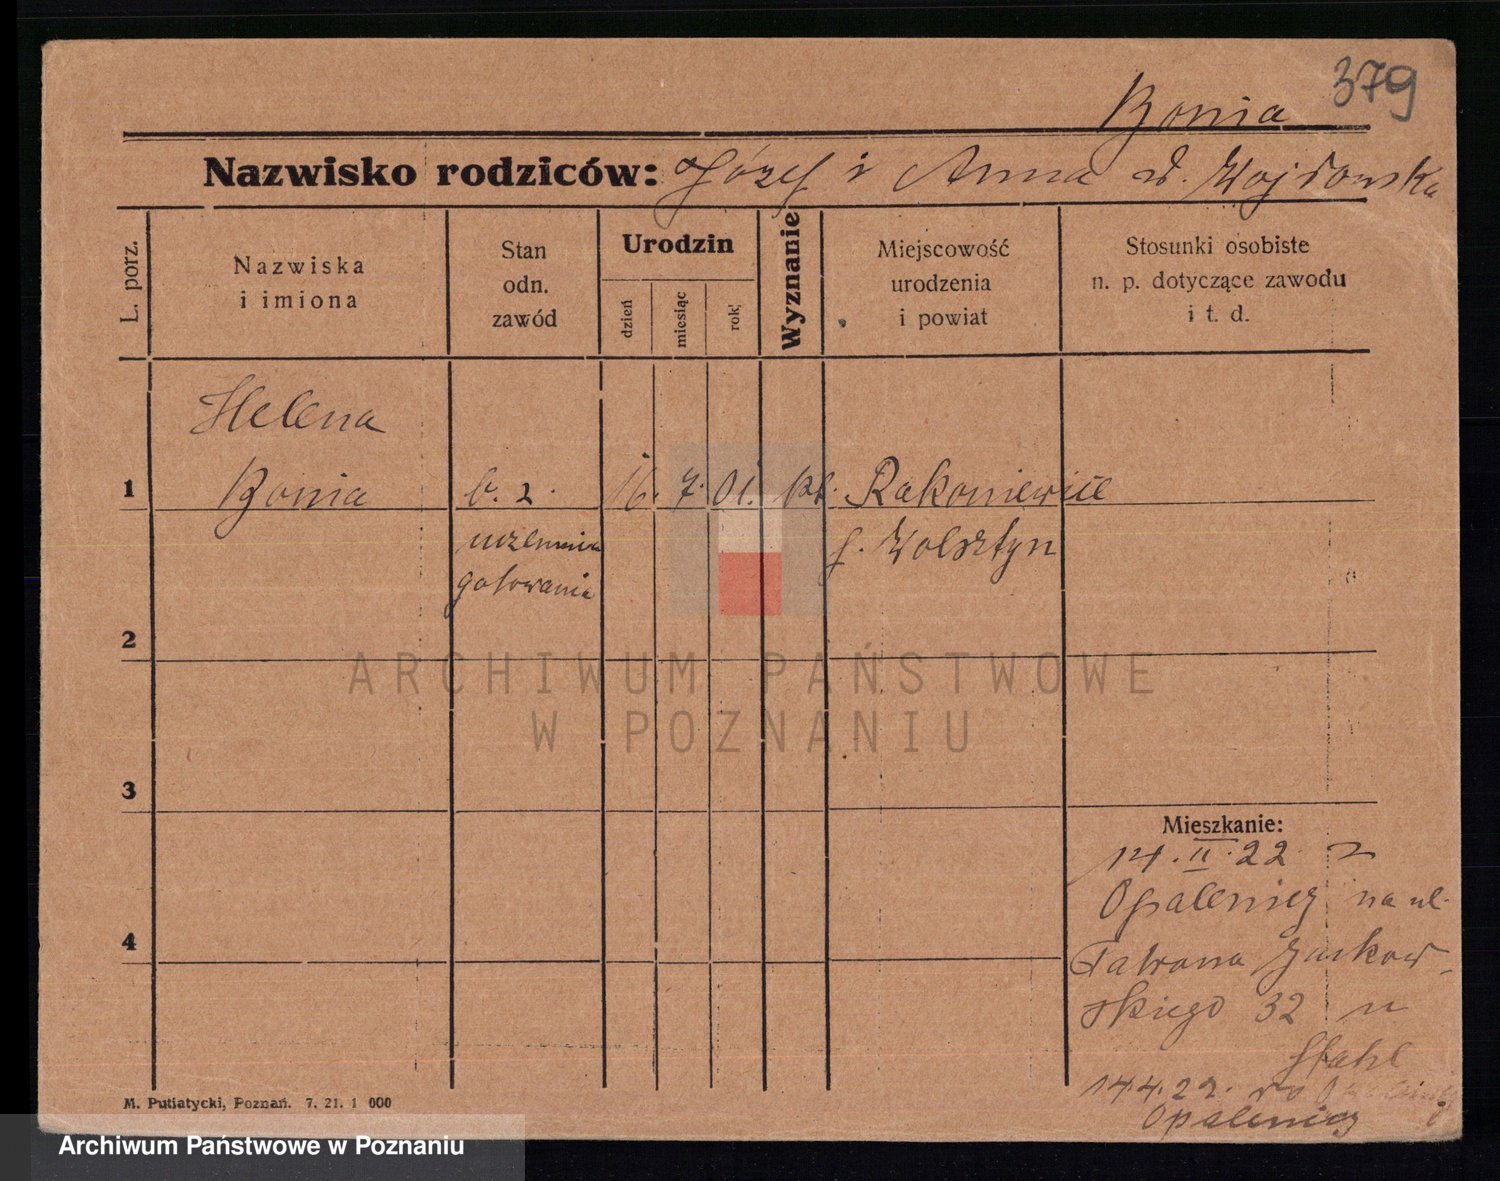 379
Bonia
Nazwisko rodziców: Józef i Anna d. Wojdowska
L. porz.
Nazwiska
i imiona
Stan
odn.
zawód
Urodzin
dzień
miesiąc
rok
Wyznanie
Miejscowość
urodzenia
i powiat
Stosunki osobiste
n. p. dotyczące zawodu
i t. d.
Helena
1 Bonia b. z. 16. 7. 01. kt. Rakoniewice
p. Wolsztyn
uczennia
gotowania
2
ARCHIWUM PAŃSTWOWE
W POZNANIU
3
Mieszkanie:
14. II. 22 z
Opalenicy na ul.
4
Patrona Jackow-
skiego 32 u
Stahl
14.4.22. do
Opalenicy
M. Putiatycki, Poznań. 7. 21. 1 000
Archiwum Państwowe w Poznaniu